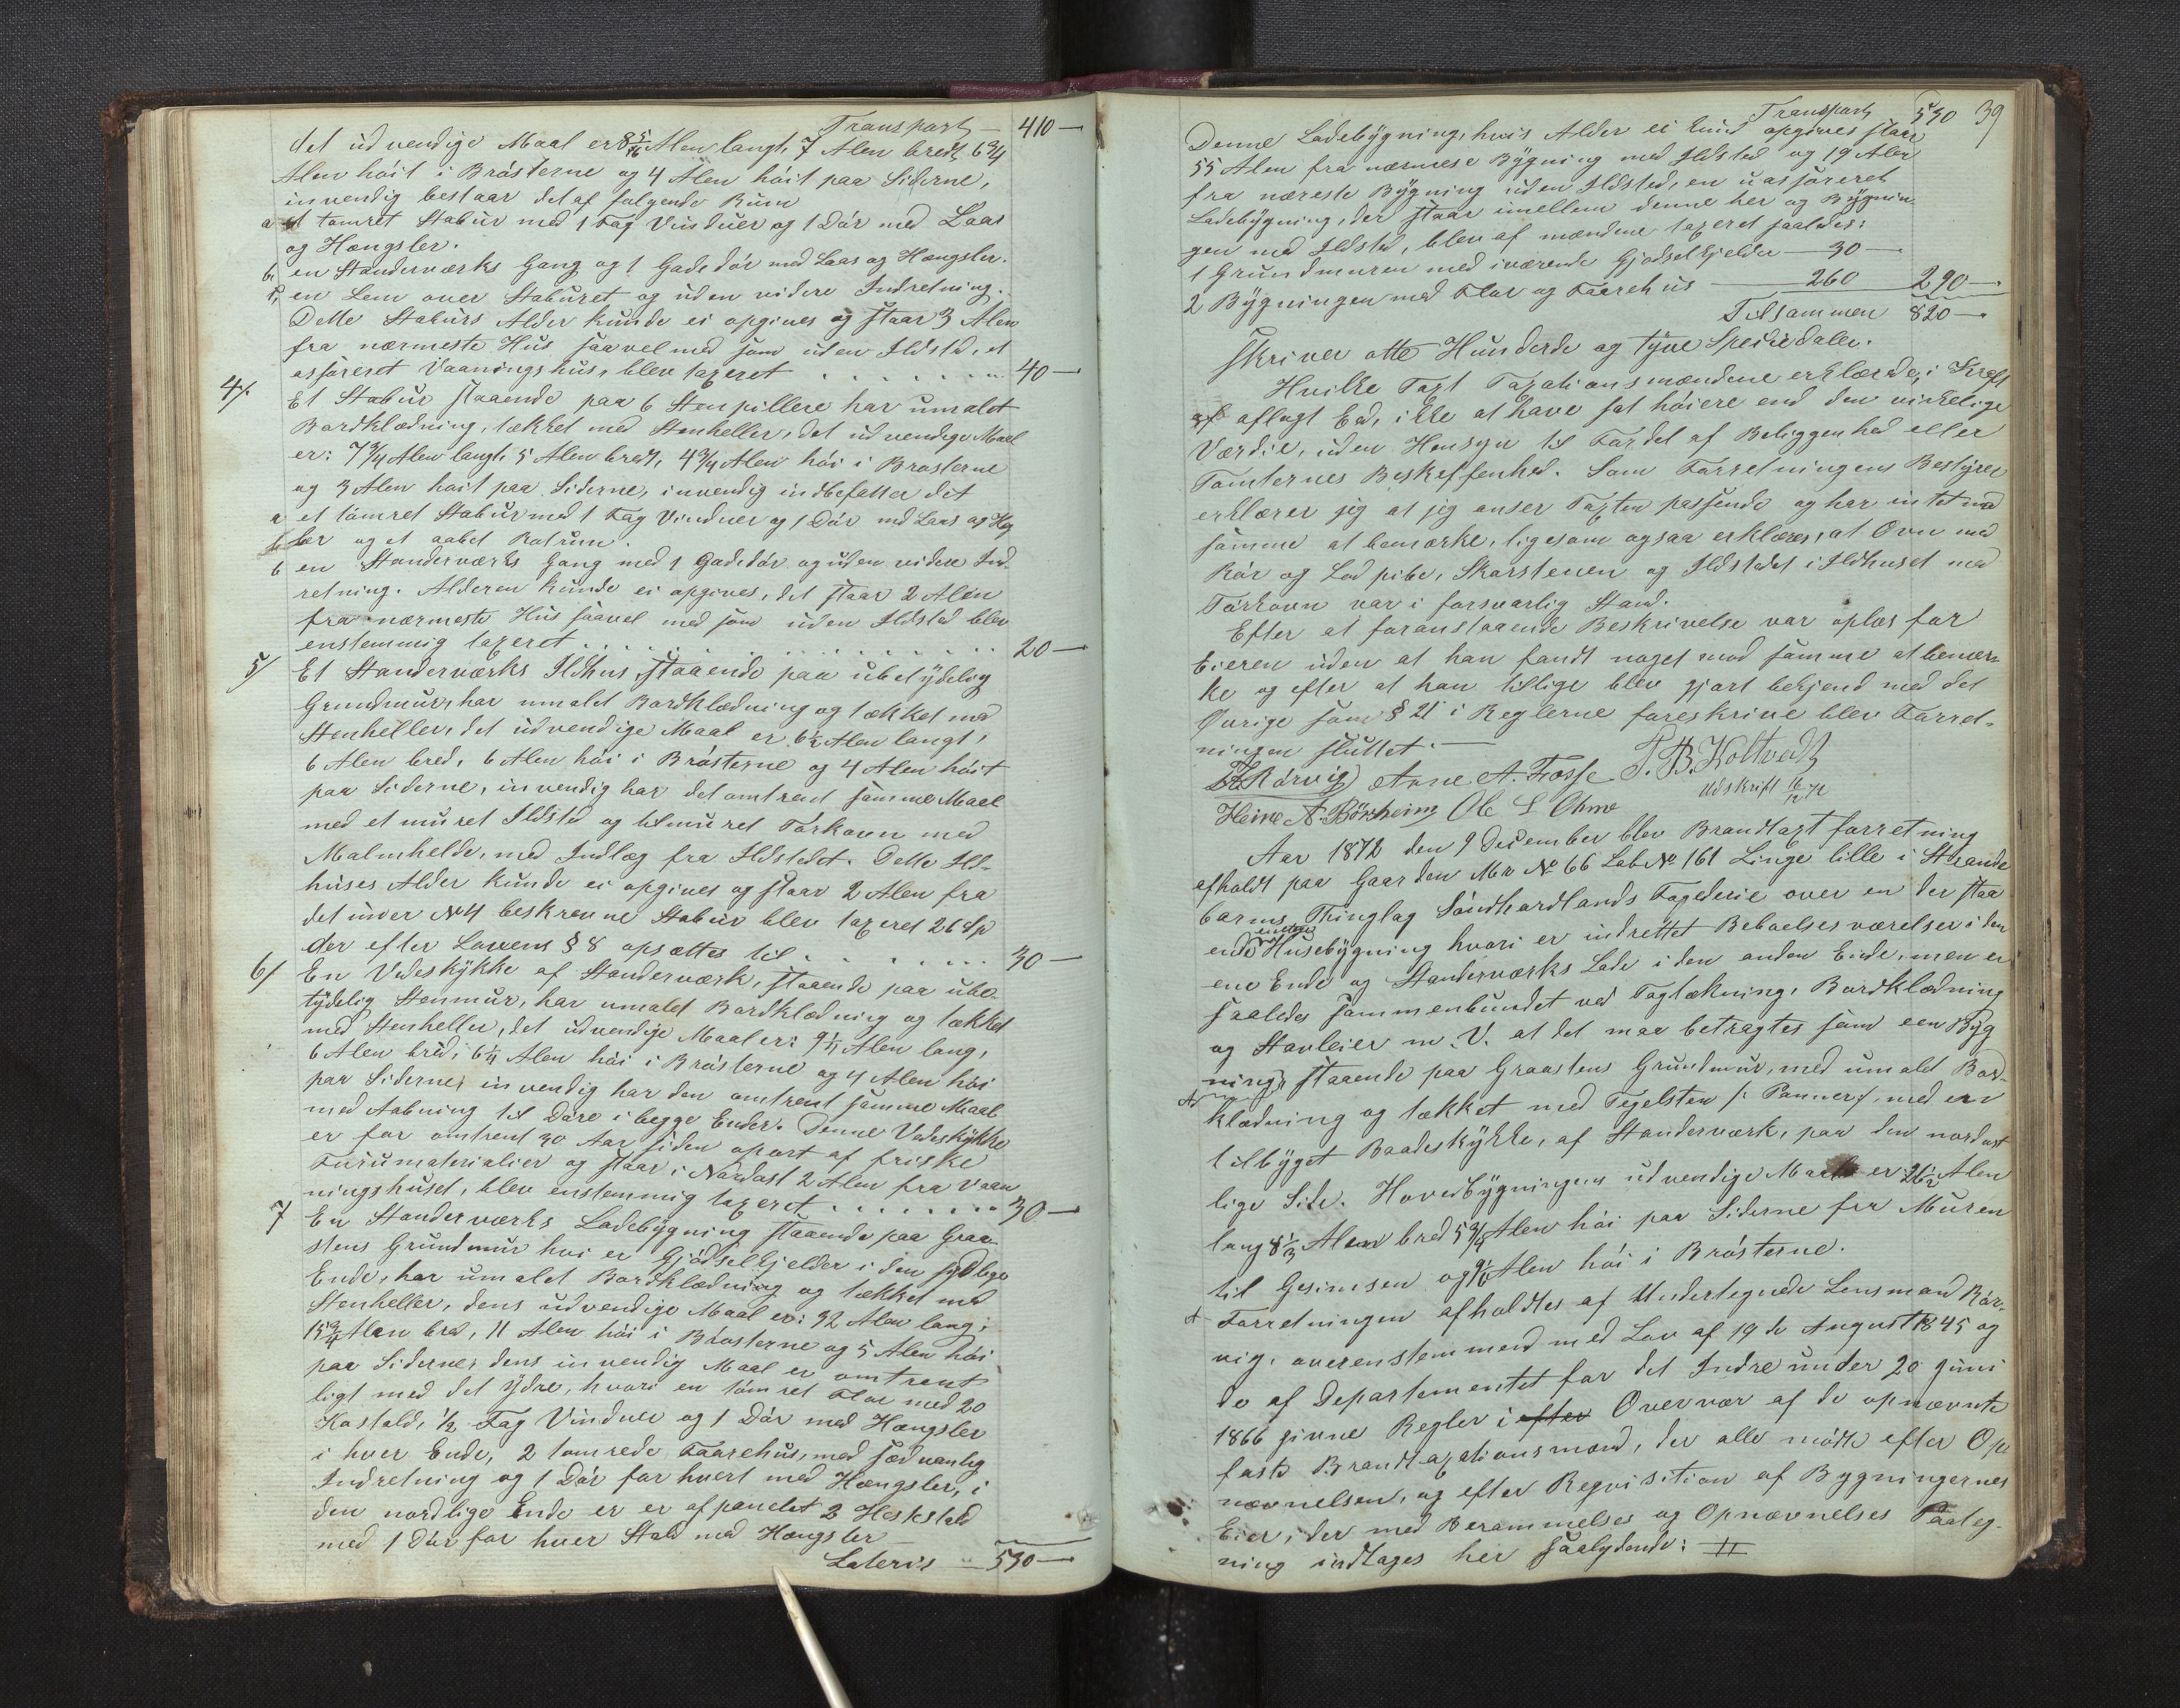 Transport – 410 –
det udvendige Maal er 8 5/16 Alen langt, 7 Alen bredt, 6 3/4
Alen høit i Brøsterne og 4 Alen høit paa Siderne,
invendig bestaar det af følgende Rum
a et tømret Stabur med 1 Fag Vinduer og 1 Dør med Laas
og Hængsler.
b, en Standerværks Gang og 1 Gadedør med Laas og Hængsler.
c, en Lem over Staburet og uden videre Indretning.
Dette Staburs Alder kunde ei opgives og staar 3 Alen
fra nærmeste Hus saavel med som uden Ildsted, et
assureret Vaaningshus, blev taxeret . . . . . . . 40 –
4/ Et Stabur staaende paa 6 Stenpillere har umalet
Bordklædning, tækket med Stenheller, det udvendige Maal
er: 7 3/4 Alen langt, 5 Alen bredt, 4 3/4 Alen høi i Brøsterne
og 3 Alen høit paa Siderne, invendig indbefatter det
a et tømret Stabur med 1 Fag Vinduer og 1 Dør med Laas og Hæng
ler og et aabet Rotrum.
b en Standerværks Gang med 1 Gadedør og uden videre Ind-
retning. Alderen kunde ei opgives, det staar 2 Alen
fra nærmeste Hus saavel med som uden Ildsted blev
enstemmig taxeret . . . . . . . . . . . . 20 –
5/ Et Standerværks Ildhus, staaende paa ubetydelig
Grundmur, har umalet Bordklædning og tækket med
Stenheller, det udvendige Maal er 6 1/2 Alen langt,
6 Alen bred, 6 Alen høi i Brøsterne og 4 Alen høit
paa Siderne, invendig har det omtrent samme Maal
med et muret Ildsted og tilmuret Tørkovn med
Malmhelde, med Indlæg fra Ildstedet. Dette Ild-
huses Alder kunde ei opgives og staar 2 Alen fra
det under No 4 beskrevne Stabur blev taxeret 26 Spd
der efter Lovens § 8 opsættes til . . . . . . . 30 –
6/ En Vedeskykke af Standerværk, staaende paa ube-
tydelig Stenmur, har umalet Bordklædning og tækket
med Stenheller, det udvendige Maal er: 9 1/4 Alen lang,
6 Alen bred, 6 1/4 Alen høi i Brøsterne og 4 Alen høi
paa Siderne, invendig har den omtrent samme Maal
med Aabning til Døre i begge Ender. Denne Vedeskykke
er for omtrent 30 Aar siden opført af friske
Furumaterialier og staar i Nordost 2 Alen fra Vaan
ningshuset, blev enstemmig taxeret . . . . . . . 30 –
7 En Standerværks Ladebygning staaende paa Graa
stens Grundmur hvi er Gjødselkjelder i den sydlige
Ende, har umalet Bordklædning og tækket med
Stenheller, dens udvendige Maal er: 32 Alen lang,
15 3/4 Alen bred, 11 Alen høi i Brøsterne og 5 Alen høi
paa Siderne, dens invendig Maal er omtrent
ligt med det ydre, hvori en tømret Flor med 20
Kostald, 1/2 Fag Vinduer og 1 Dør med Hængsler
i hver Ende, 2 tømrede Faarehus, med sædvanlig
Indretning og 1 Dør for hvert med Hængsler, i
den nordlige Ende er er afpanelet 2 Hestestald
med 1 Dør for hver Stald med Hængsler
Lateris – 530 –
Transport 530 39
Denne Ladebygning, hvis Alder ei kund opgives staar
55 Alen fra nærmese Bygning med Ildsted og 19 Alen
fra næreste Bygning uden Ildsted, en uassureret
Ladebygning, der staar imellem denne her og Bygnin-
gen med Ildsted, blev af mændene taxeret saaledes:
1 Grundmuren med iværende Gjødselkjelder – 30 –
2 Bygningen med Flor og Faarehus – 260 290 –
Tilsammen 820 –
skriver otte Hunderde og tyve Speciedaler.
Hvilke Taxt Taxationsmændene erklærede, i Kraft
af aflagt Ed, ikke at have sat høiere end den virkelige
Værdie, uden Hensyn til Fordel af Beliggenhed eller
Tomternes Beskaffenhed. Som Forretningens Bestyrer
erklærer jeg at jeg anser Taxten passende og har intet ved
samme at bemærke, ligesom ogsaa erklæres, at Ovn med
Rør og Lodpibe, Skorstenen og Ildstedet i Ildhuset med
Tørkovn var i forsvarlig Stand.
Efter at foranstaaende Beskrivelse var oplæs for
Eieren uden at han fandt noget med samme at bemær-
ke og efter at han tillige blev gjort bekjend med det
Øvrige som § 21 i Reglerne foreskrive blev Forret-
ningen sluttet. –
Rørvig Arne A. Fosse P. B. Koltvedt
Heine A. Børsheim Ole L Ohme Udskrift 16/12 72
Aar 1872 den 9 December blev Brandtaxtforretning
afholdt paa Gaarden Mr No 66 Lab No 161 Linge lille i Strande
barms Thinglag Søndhordlands Fogderie over en der staa
ende Husebygning hvori er indrettet Beboelsesværelser i den
ene Ende og Standerværks Lade i den anden Ende, men er
saaledes sammenbundet ved Tagtækning, Bordklædning
og Stavleier m. V. at det maa betragtes som een Byg
ning, staaende paa Graastens Grundmur, med umalet Bord-
klædning og tækket med Tegelsten /: Panner :/, med en
tilbyget Baadeskykke, af Standerværk, paa den nordost
lige Side. Hovedbygningens udvendige Maal er 26 1/2 Alen
lang 8 1/3 Alen bred 5 3/4 Alen høi paa Siderne fra Muren
til Gesimsen og 9 1/6 Alen høi i Brøsterne.
A Forretningen afholdtes af Undertegnede Lensmand Rør-
vig, overenstemmend med Lov af 19de August 1845 og
de af Departementet for det Indre under 20 Juni
1866 givne Regler i efter Overvær af de opnævnte
faste Brandtaxationsmænd, der alle mødte efter Op
nævnelsen, og efter Reqvisition af Bygningernes
Eier, der med Berammelses og Opnævnelses Paateg-
ning indtages her saalydende: #